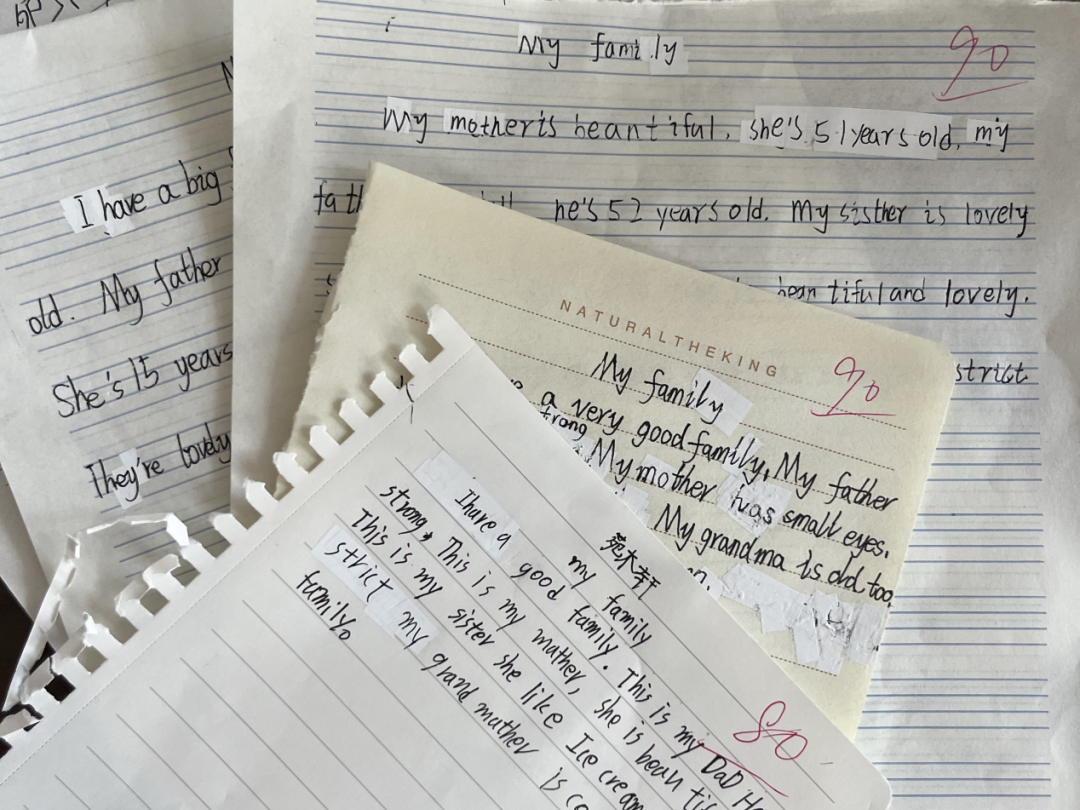 My family
90
My mother is beantiful. she's 51 years old. my
he's 52 years old. My sisther is lovely
beantiful and lovely.
strict
I have a big
old. My father
She's 15 years
They're lovely
NATURALTHEKING
My family
90
a very good family, My father
trong
My mother has small eyes.
My grandma is old too.
my family
80
I have a good family. This is my DaD
strong, This is my mather, she is bean
This is my sister she like Ice cream
strict my grand mather is
family。